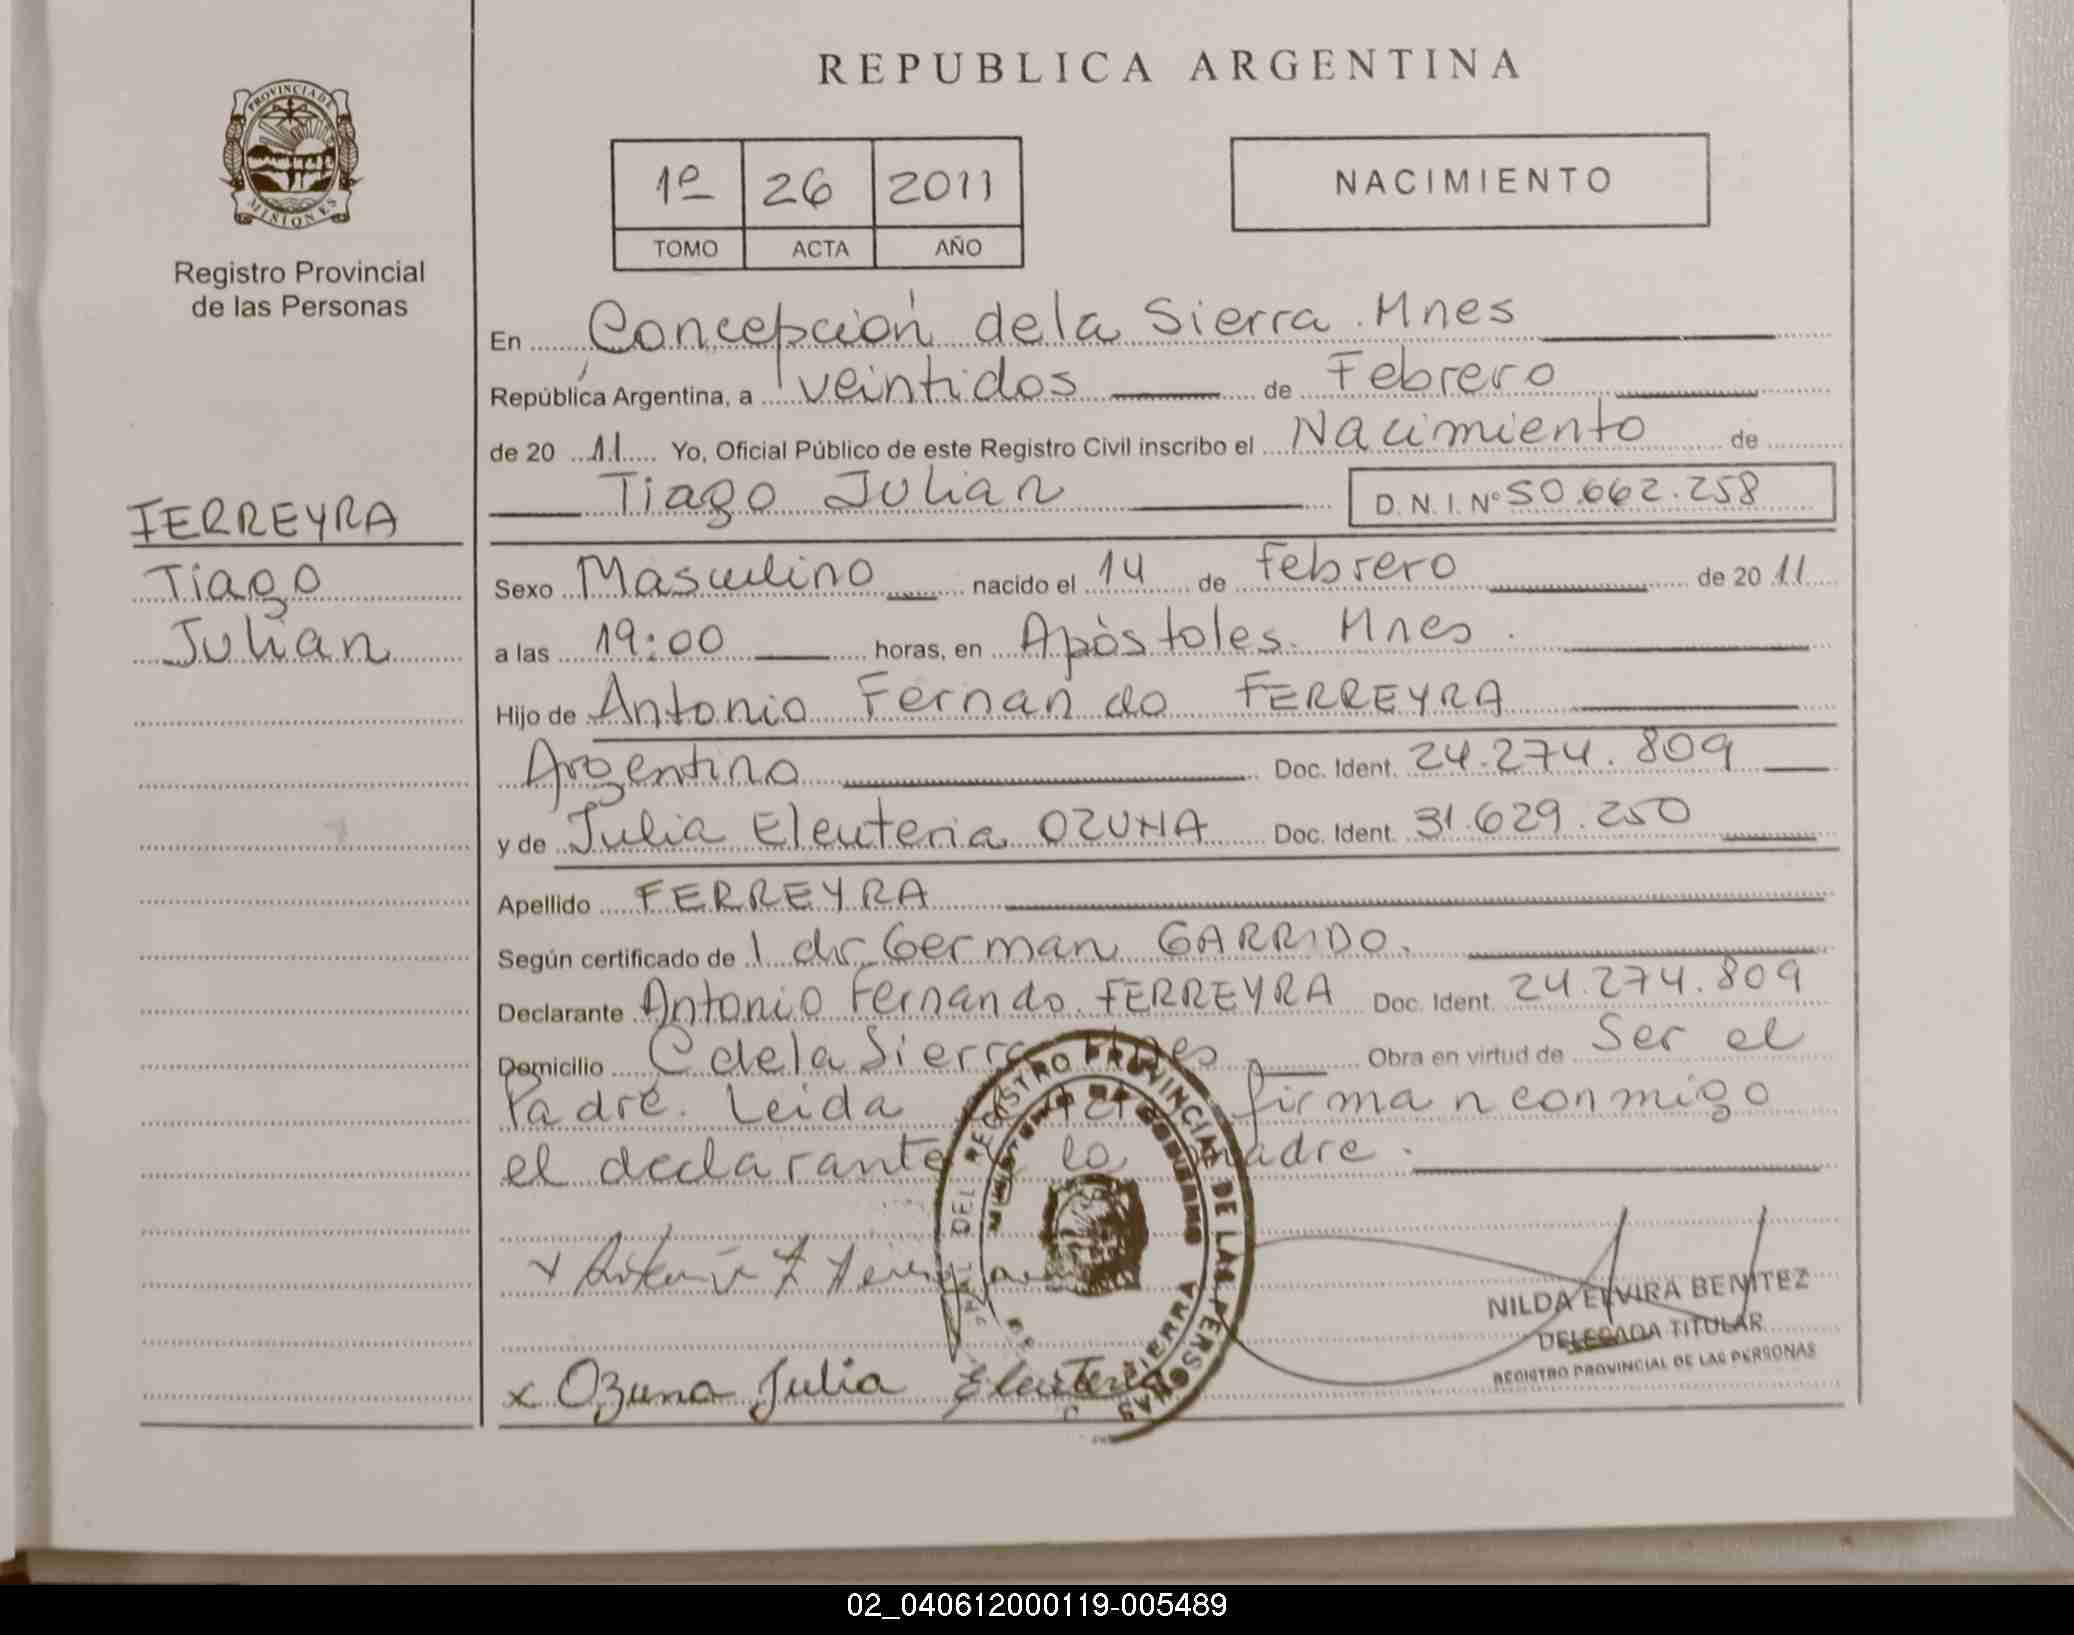 REPUBLICA ARGENTINA
PROVINCIA DE
MISIONES
Registro Provincial
de las Personas
1º 26 2011
TOMO ACTA AÑO
NACIMIENTO
En Concepción de la Sierra. Mnes
República Argentina, a veintidos de Febrero
de 20 11 Yo, Oficial Público de este Registro Civil inscribo el Nacimiento de
Tiago Julian D.N.I.Nº 50.662.258
FERREYRA
Tiago
Julian
Sexo Masculino nacido el 14 de febrero de 20 11
a las 19:00 horas, en Apòstoles. Mnes.
Hijo de Antonio Fernando FERREYRA
Argentino Doc. Ident. 24.274.809
y de Julia Eleuteria OZUNA Doc. Ident. 31.629.250
Apellido FERREYRA
Según certificado de l dr German GARRIDO.
Declarante Antonio Fernando FERREYRA Doc. Ident. 24.274.809
Domicilio C de la Sierra Mnes Obra en virtud de Ser el
Padre. Leida firman conmigo
el declarante la madre.
REGISTRO PROVINCIAL DE LAS PERSONAS
MINISTERIO DE GOBIERNO
SIERRA
x Antonio F Ferreyra
x Ozuna Julia Eleuteria
NILDA ELVIRA BENITEZ
DELEGADA TITULAR
REGISTRO PROVINCIAL DE LAS PERSONAS
02_040612000119-005489